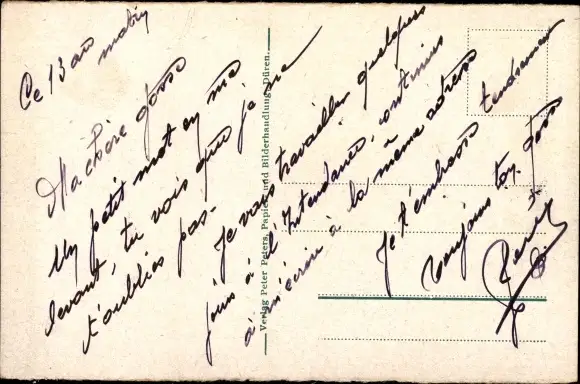 Ce 13 août matin
Ma chère gosse
Un petit mot en me
levant, tu vois que je ne
t'oublies pas.
Je vais travailler quelques
jours à l'Intendance, continues
à m'écrire à la même adresse
Je t'embrasse tendrement
toujours ton gosse
René
Verlag Peter Peters, Papier- und Bilderhandlung, Düren.